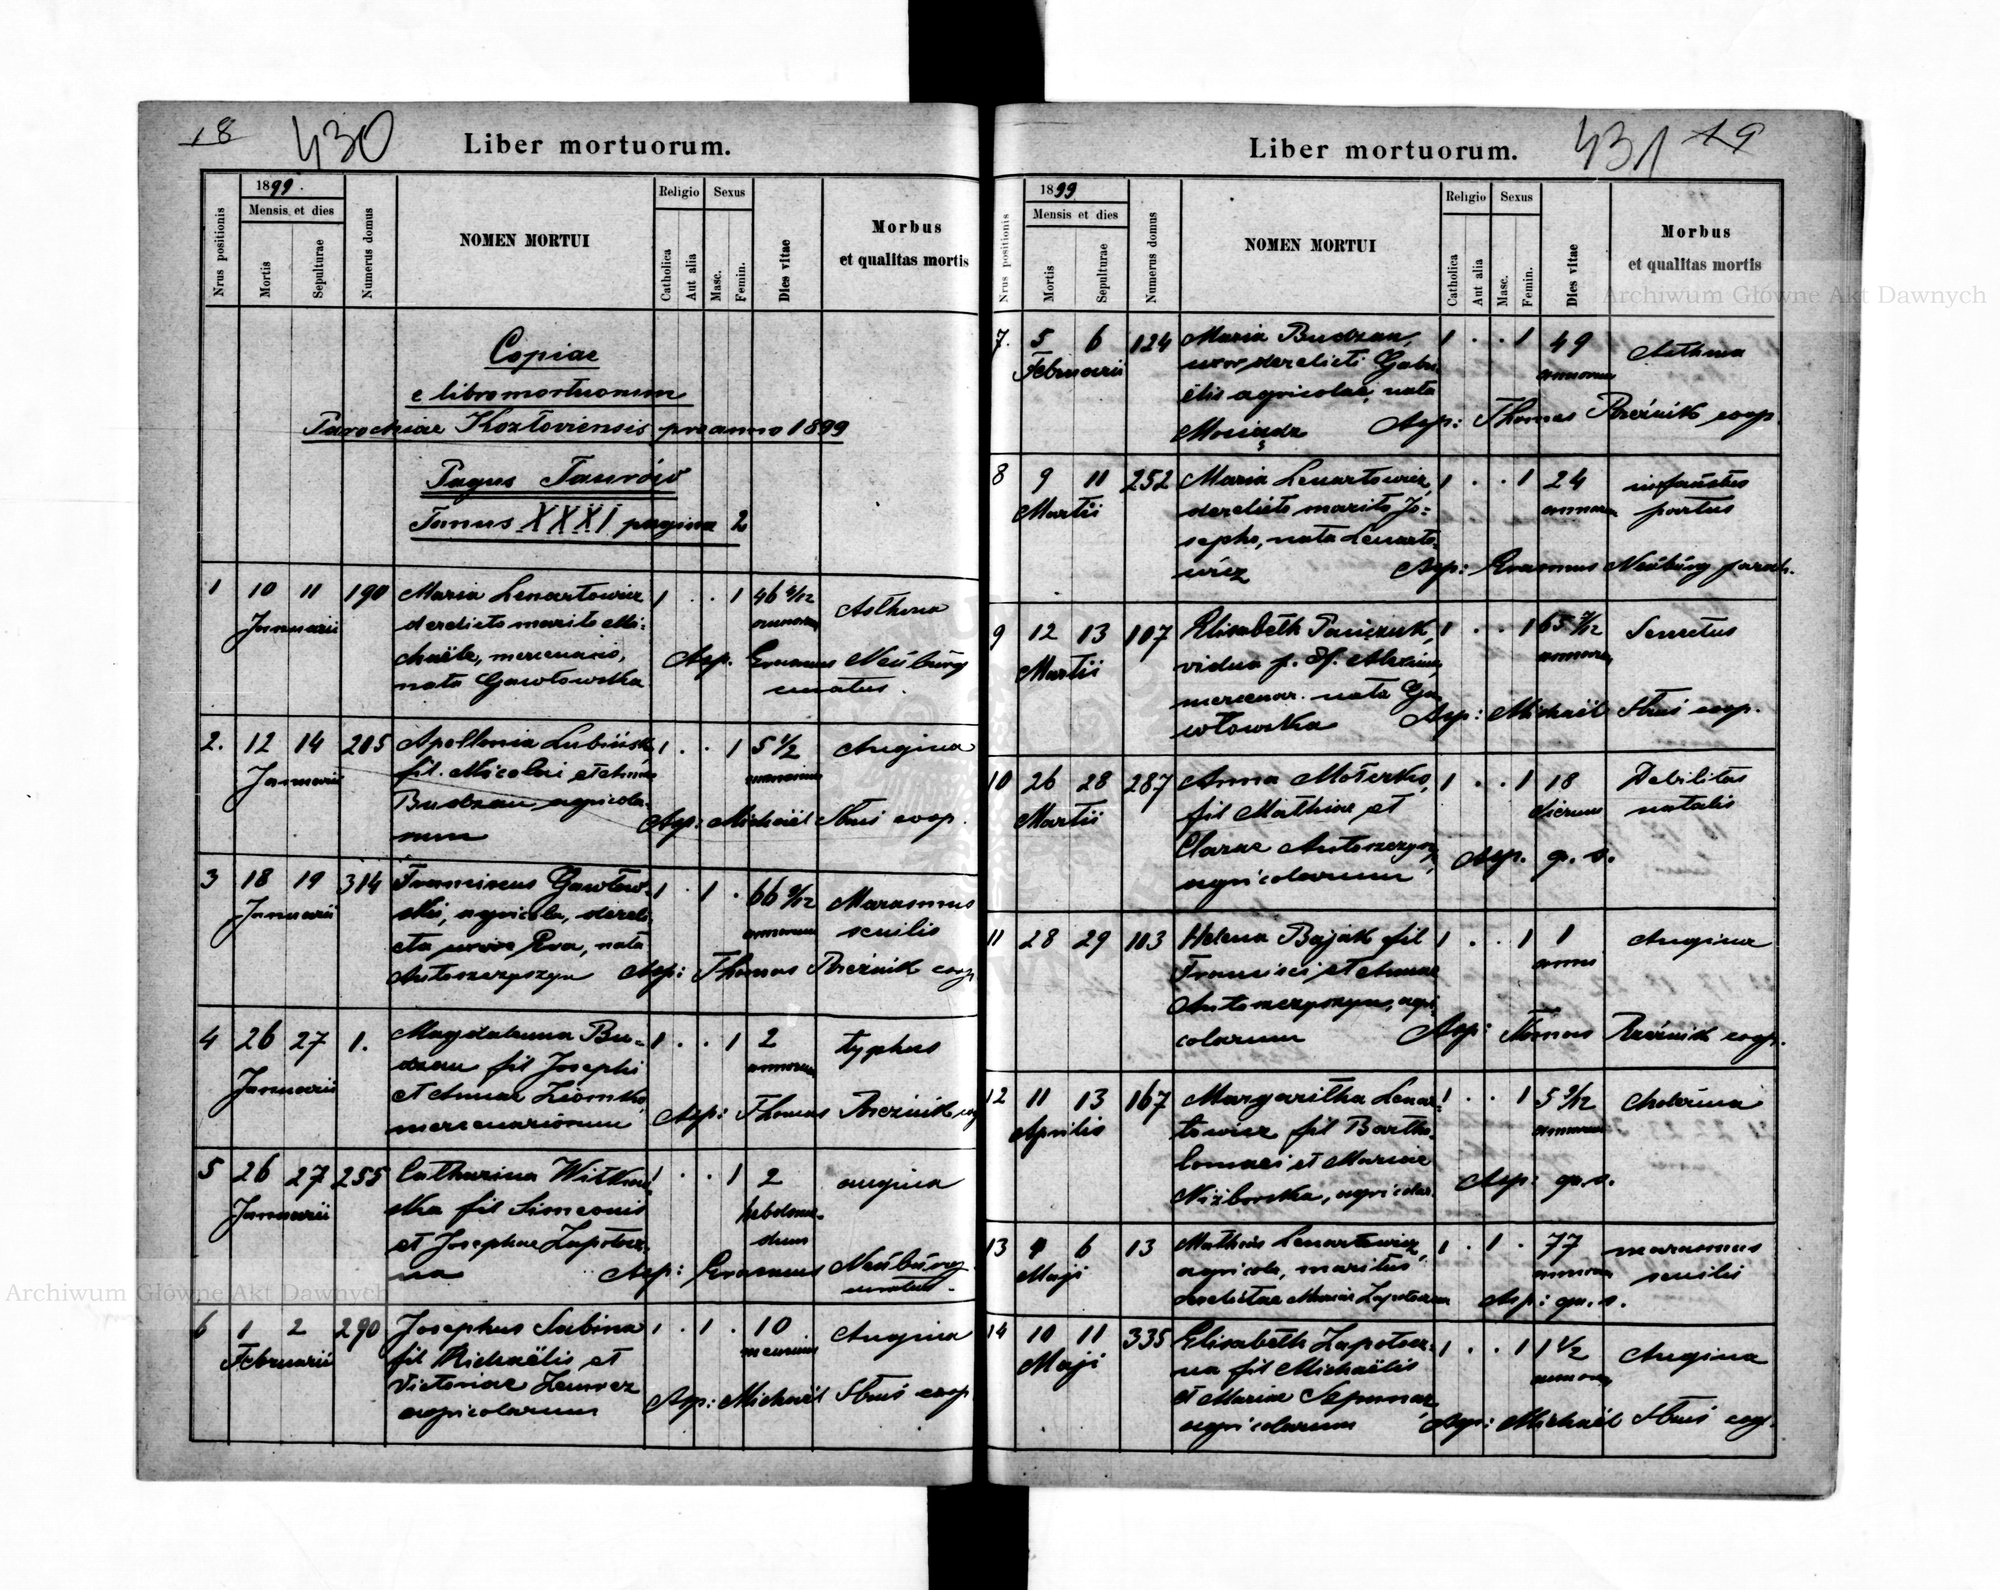 18 430 Liber mortuorum.
Nrus positionis
1899.
Mensis et dies
Mortis
Sepulturae
Numerus domus
NOMEN MORTUI
Religio
Catholica
Aut alia
Sexus
Masc.
Femin.
Dies vitae
Morbus
et qualitas mortis
Copiae
e libro mortuorum
Parochiae Kozłoviensis pro anno 1899
Pagus Taurów
Tomus XXXI pagina 2
1 10 11 190 Maria Lenartowicz 1 . . 1 46 4/12 Asthma
Januarii derelicto marito Mi- annorum
chaële, mercenario, Asp. Erasmus Neúbúrg
nata Gawłowska curatus.
2. 12 14 205 Apollonia Lubińsk 1 . . 1 5 1/2 Angina
Januarii fil. Nicolai et Annae annorum
Budzan, agricola- Asp: Michaël Stuś coop.
rum
3 18 19 314 Franciscus Gawłow- 1 . 1 . 66 9/12 Marasmus
Januarii ski, agricola, dereli- annorum senilis
cta uxore Eva, nata
Antoszczyszyn Asp: Thomas Brzéznik coop
4 26 27 1. Magdalenna Bu- 1 . . 1 2 typhus
Januarii dzan fil Josephi annorum
et Annae Ziomko, Asp: Thomas
mercenariorum
5 26 27 255 Catharina Witkow- 1 . . 1 2 angina
Januarii ska fil Simeonis hebdoma-
et Josephae Zapotocz- dum
na Asp: Erasmus Neúbúrg
curatus.
6 1 2 290 Josephus Sabina 1 . 1 . 10 Angina
Februarii fil Michaëlis et mensium
Victoriae
agricolarum Asp: Michaël Stuś coop
Liber mortuorum. 431 19
Nrus positionis
1899
Mensis et dies
Mortis
Sepulturae
Numerus domus
NOMEN MORTUI
Religio
Catholica
Aut alia
Sexus
Masc.
Femin.
Dies vitae
Morbus
et qualitas mortis
7. 5 6 124 Maria Budzan, 1 . . 1 49 Asthma
Februarii uxor derelicti Gabri- annorum
elis agricolae, nata
Asp: Thomas coop.
8 9 11 252 Maria Lenartowicz, 1 . . 1 24 infaústus
Martii derelicto marito Jo- annorum partus
sepho, nata Lenarto-
wicz Asp: Erasmus Neúbúrg paroch.
9 12 13 107 Elisabeth Panczuk, 1 . . 1 65 7/12 Senectus
Martii vidua p. annorum
mercenar. nata Ga-
włowska Asp: Michaël Stuś coop.
10 26 28 287 Anna Moterko, 1 . . 1 18 Debilitas
Martii fil Mathiae et dierum natalis
Clarae Antoszczyszyn,
agricolarum Asp. q. s.
11 28 29 103 Helena Bajak fil 1 . . 1 1 Angina
Francisci et Annae annus
Antoszczyszyn, agri-
colarum Asp: Thomas coop.
12 11 13 167 Margaritha Lenar- 1 . . 1 5 9/12 Cholerina
Aprilis towicz fil Bartho- annorum
lomaei et Mariae
Niżborska, agricolar. Asp: q. s.
13 4 6 13 Mathias Lenartowicz, 1 . 1 . 77 marasmus
Maji agricola, maritus annorum senilis
derelictae Mariae Zapotoczna Asp: q. s.
14 10 11 335 Elisabeth Zapotocz- 1 . . 1 1 1/2 Angina
Maji na fil Michaëlis annorum
et Mariae
agricolarum Asp: Michaël Stuś coop.
Archiwum Główne Akt Dawnych
Archiwum Główne Akt Dawnych